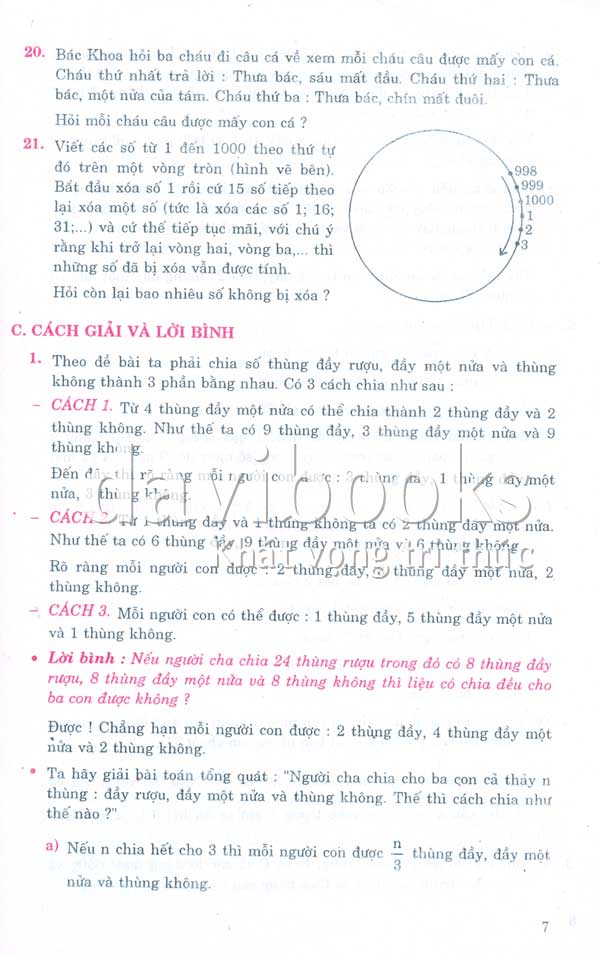 20. Bác Khoa hỏi ba cháu đi câu cá về xem mỗi cháu câu được mấy con cá.
Cháu thứ nhất trả lời : Thưa bác, sáu mất đầu. Cháu thứ hai : Thưa
bác, một nửa của tám. Cháu thứ ba : Thưa bác, chín mất đuôi.
Hỏi mỗi cháu câu được mấy con cá ?
21. Viết các số từ 1 đến 1000 theo thứ tự
đó trên một vòng tròn (hình vẽ bên).
Bắt đầu xóa số 1 rồi cứ 15 số tiếp theo
lại xóa một số (tức là xóa các số 1; 16;
31;...) và cứ thế tiếp tục mãi, với chú ý
rằng khi trở lại vòng hai, vòng ba,... thì
những số đã bị xóa vẫn được tính.
Hỏi còn lại bao nhiêu số không bị xóa ?
998
999
1000
1
2
3
C. CÁCH GIẢI VÀ LỜI BÌNH
1. Theo đề bài ta phải chia số thùng đầy rượu, đầy một nửa và thùng
không thành 3 phần bằng nhau. Có 3 cách chia như sau :
– CÁCH 1. Từ 4 thùng đầy một nửa có thể chia thành 2 thùng đầy và 2
thùng không. Như thế ta có 9 thùng đầy, 3 thùng đầy một nửa và 9
thùng không.
Đến đây thì rõ ràng mỗi người con được : 3 thùng 1 thùng đầy một
nửa, 3 thùng không.
– CÁCH Từ 1 thùng đầy và 1 thùng không ta có 2 thùng đầy một nửa.
Như thế ta có 6 thùng đầy, 9 thùng đầy một nửa và 6 thùng không.
Rõ ràng mỗi người con được : 2 thùng đầy, 3 thùng đầy một nửa, 2
thùng không.
– CÁCH 3. Mỗi người con có thể được : 1 thùng đầy, 5 thùng đầy một nửa
và 1 thùng không.
• Lời bình : Nếu người cha chia 24 thùng rượu trong đó có 8 thùng đầy
rượu, 8 thùng đầy một nửa và 8 thùng không thì liệu có chia đều cho
ba con được không ?
Được ! Chẳng hạn mỗi người con được : 2 thùng đầy, 4 thùng đầy một
nửa và 2 thùng không.
• Ta hãy giải bài toán tổng quát : "Người cha chia cho ba con cả thảy n
thùng : đầy rượu, đầy một nửa và thùng không. Thế thì cách chia như
thế nào ?"
a) Nếu n chia hết cho 3 thì mỗi người con được n/3 thùng đầy, đầy một
nửa và thùng không.
davibooks
khát vọng tri thức
7